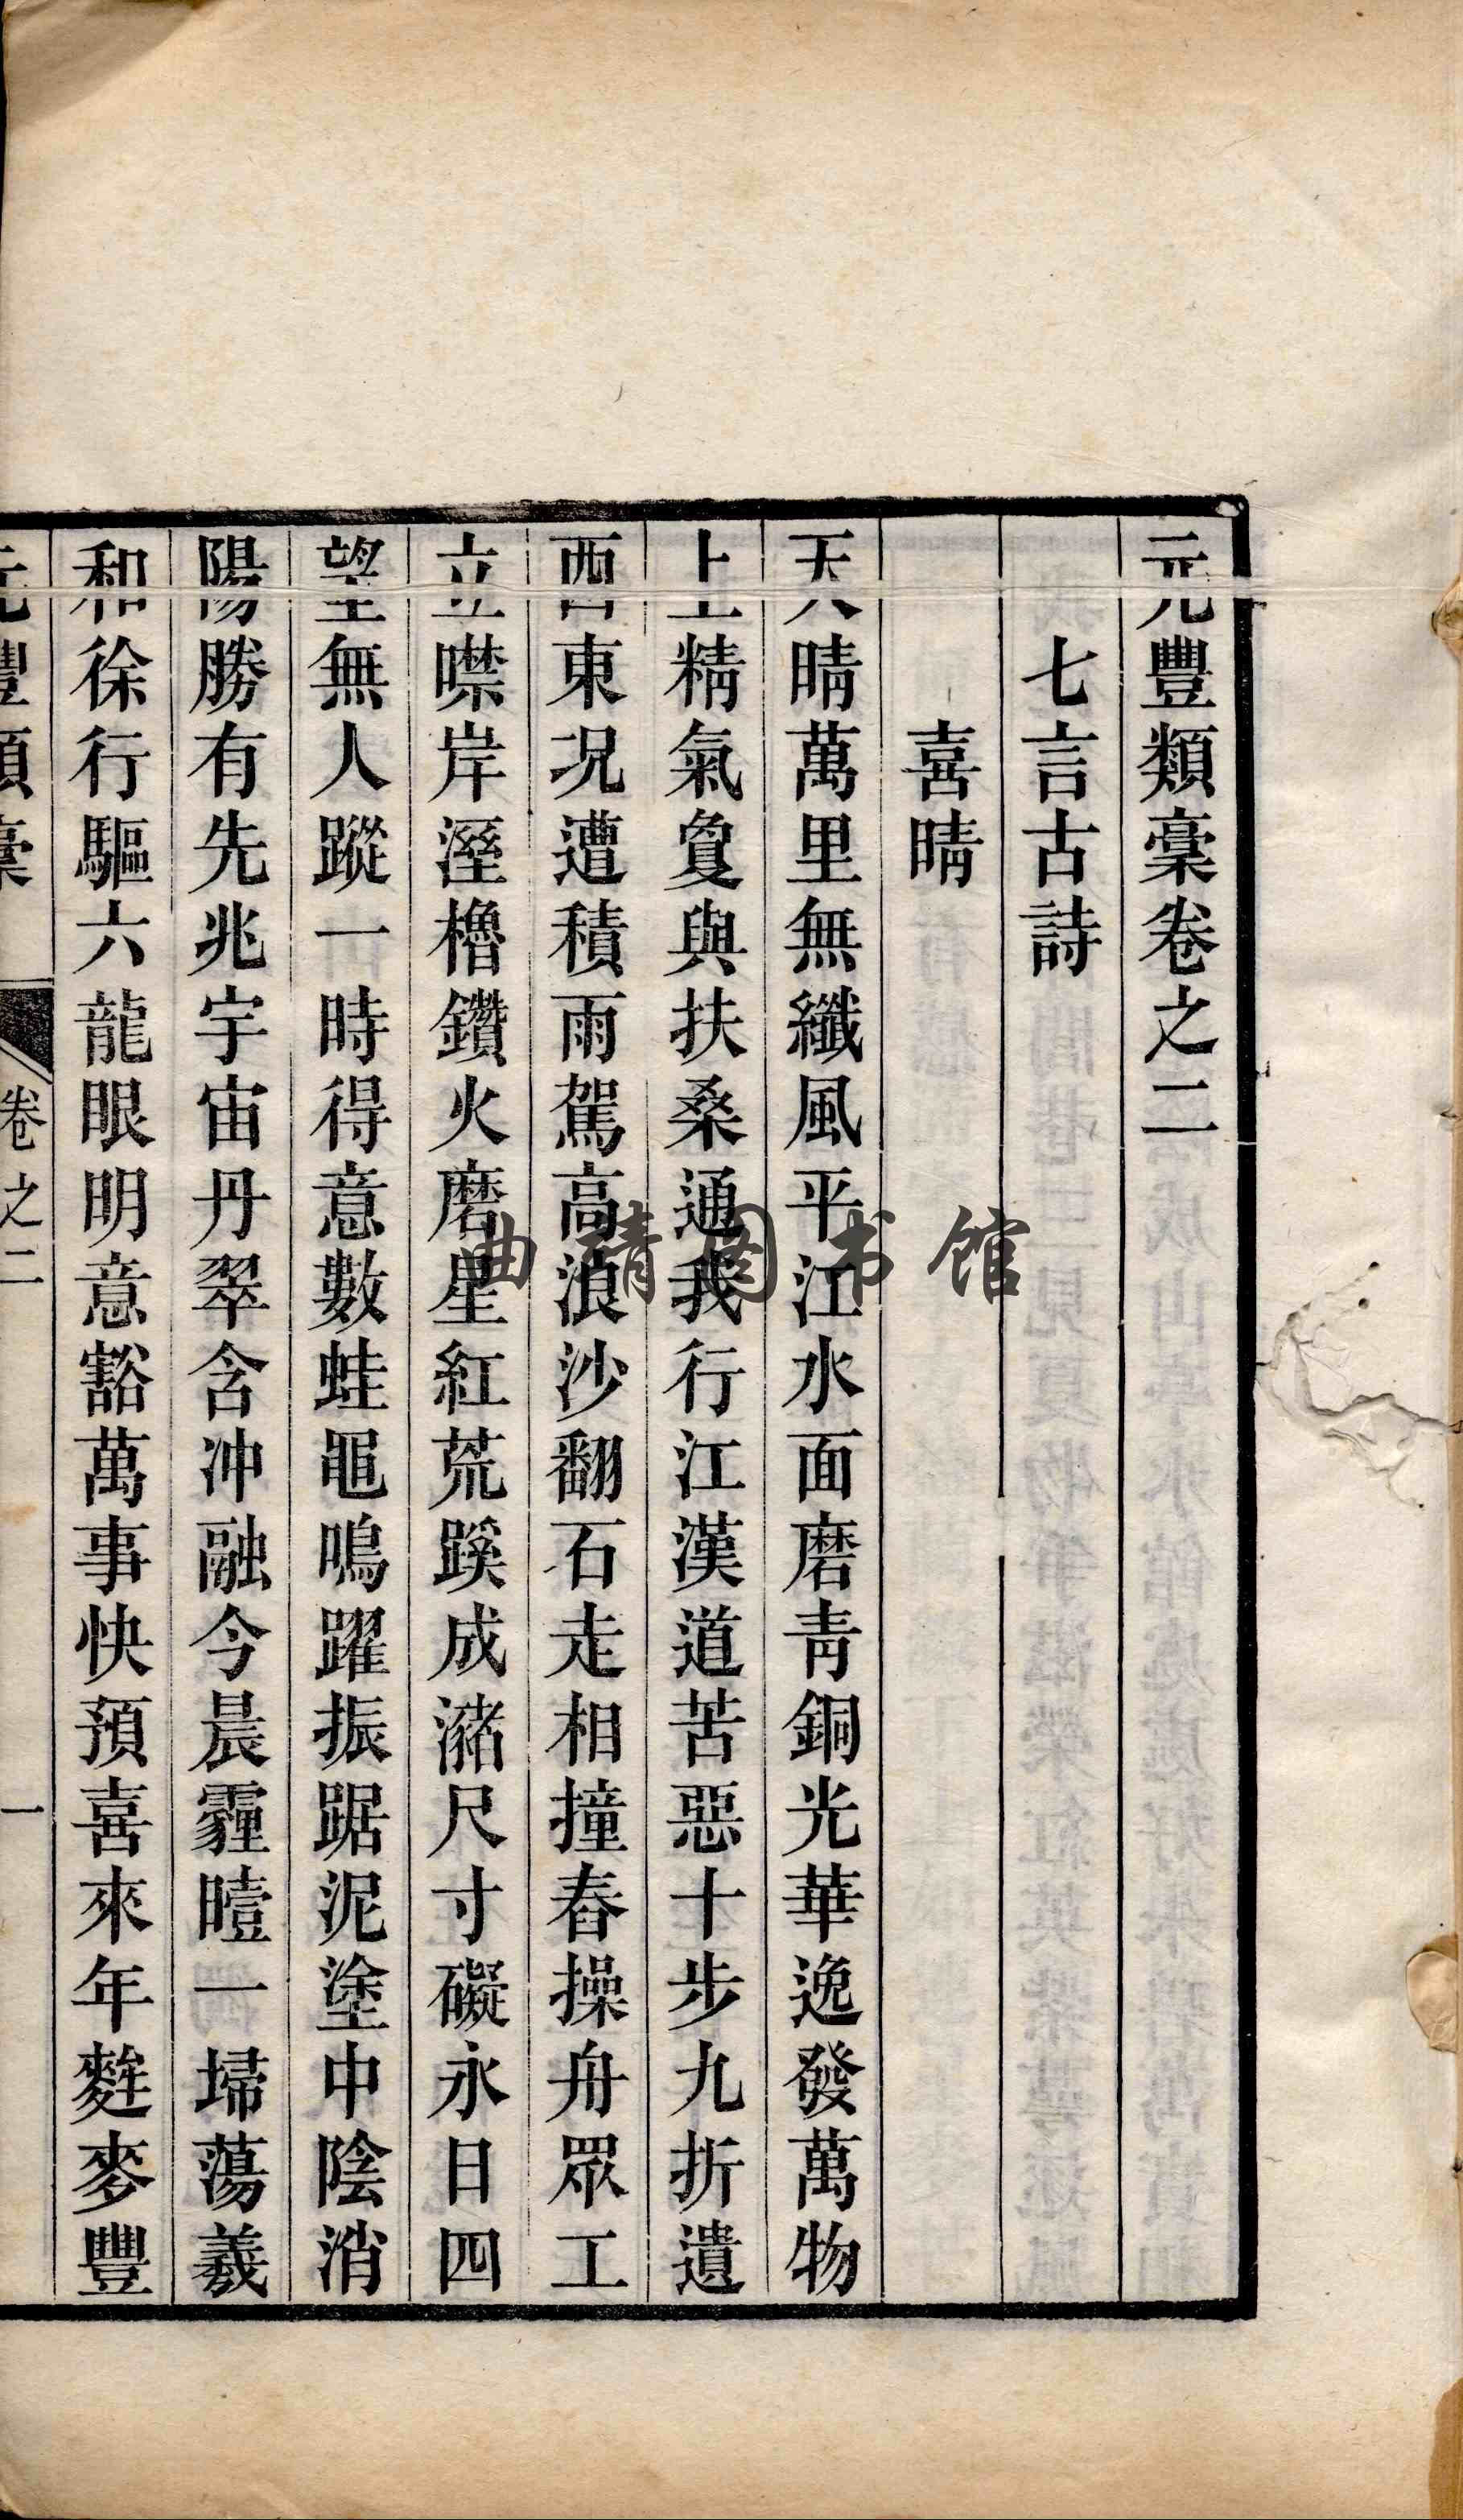 元豐類稾卷之二
七言古詩
喜晴
天晴萬里無纖風平江水面磨青銅光華逸發萬物
上精氣夐與扶桑通我行江漢道苦惡十步九折遺
西東况遭積雨駕高浪沙翻石走相撞舂操舟眾工
立噤岸溼櫓鑽火磨星紅荒蹊成瀦尺寸礙永日四
望無人蹤一時得意數蛙黽鳴躍振踞泥塗中陰消
陽勝有先兆宇宙丹翠含沖融今晨霾曀一埽蕩羲
和徐行驅六龍眼明意豁萬事快預喜來年麰麥豐
元豐類稾 卷之二 一
曲靖图书馆